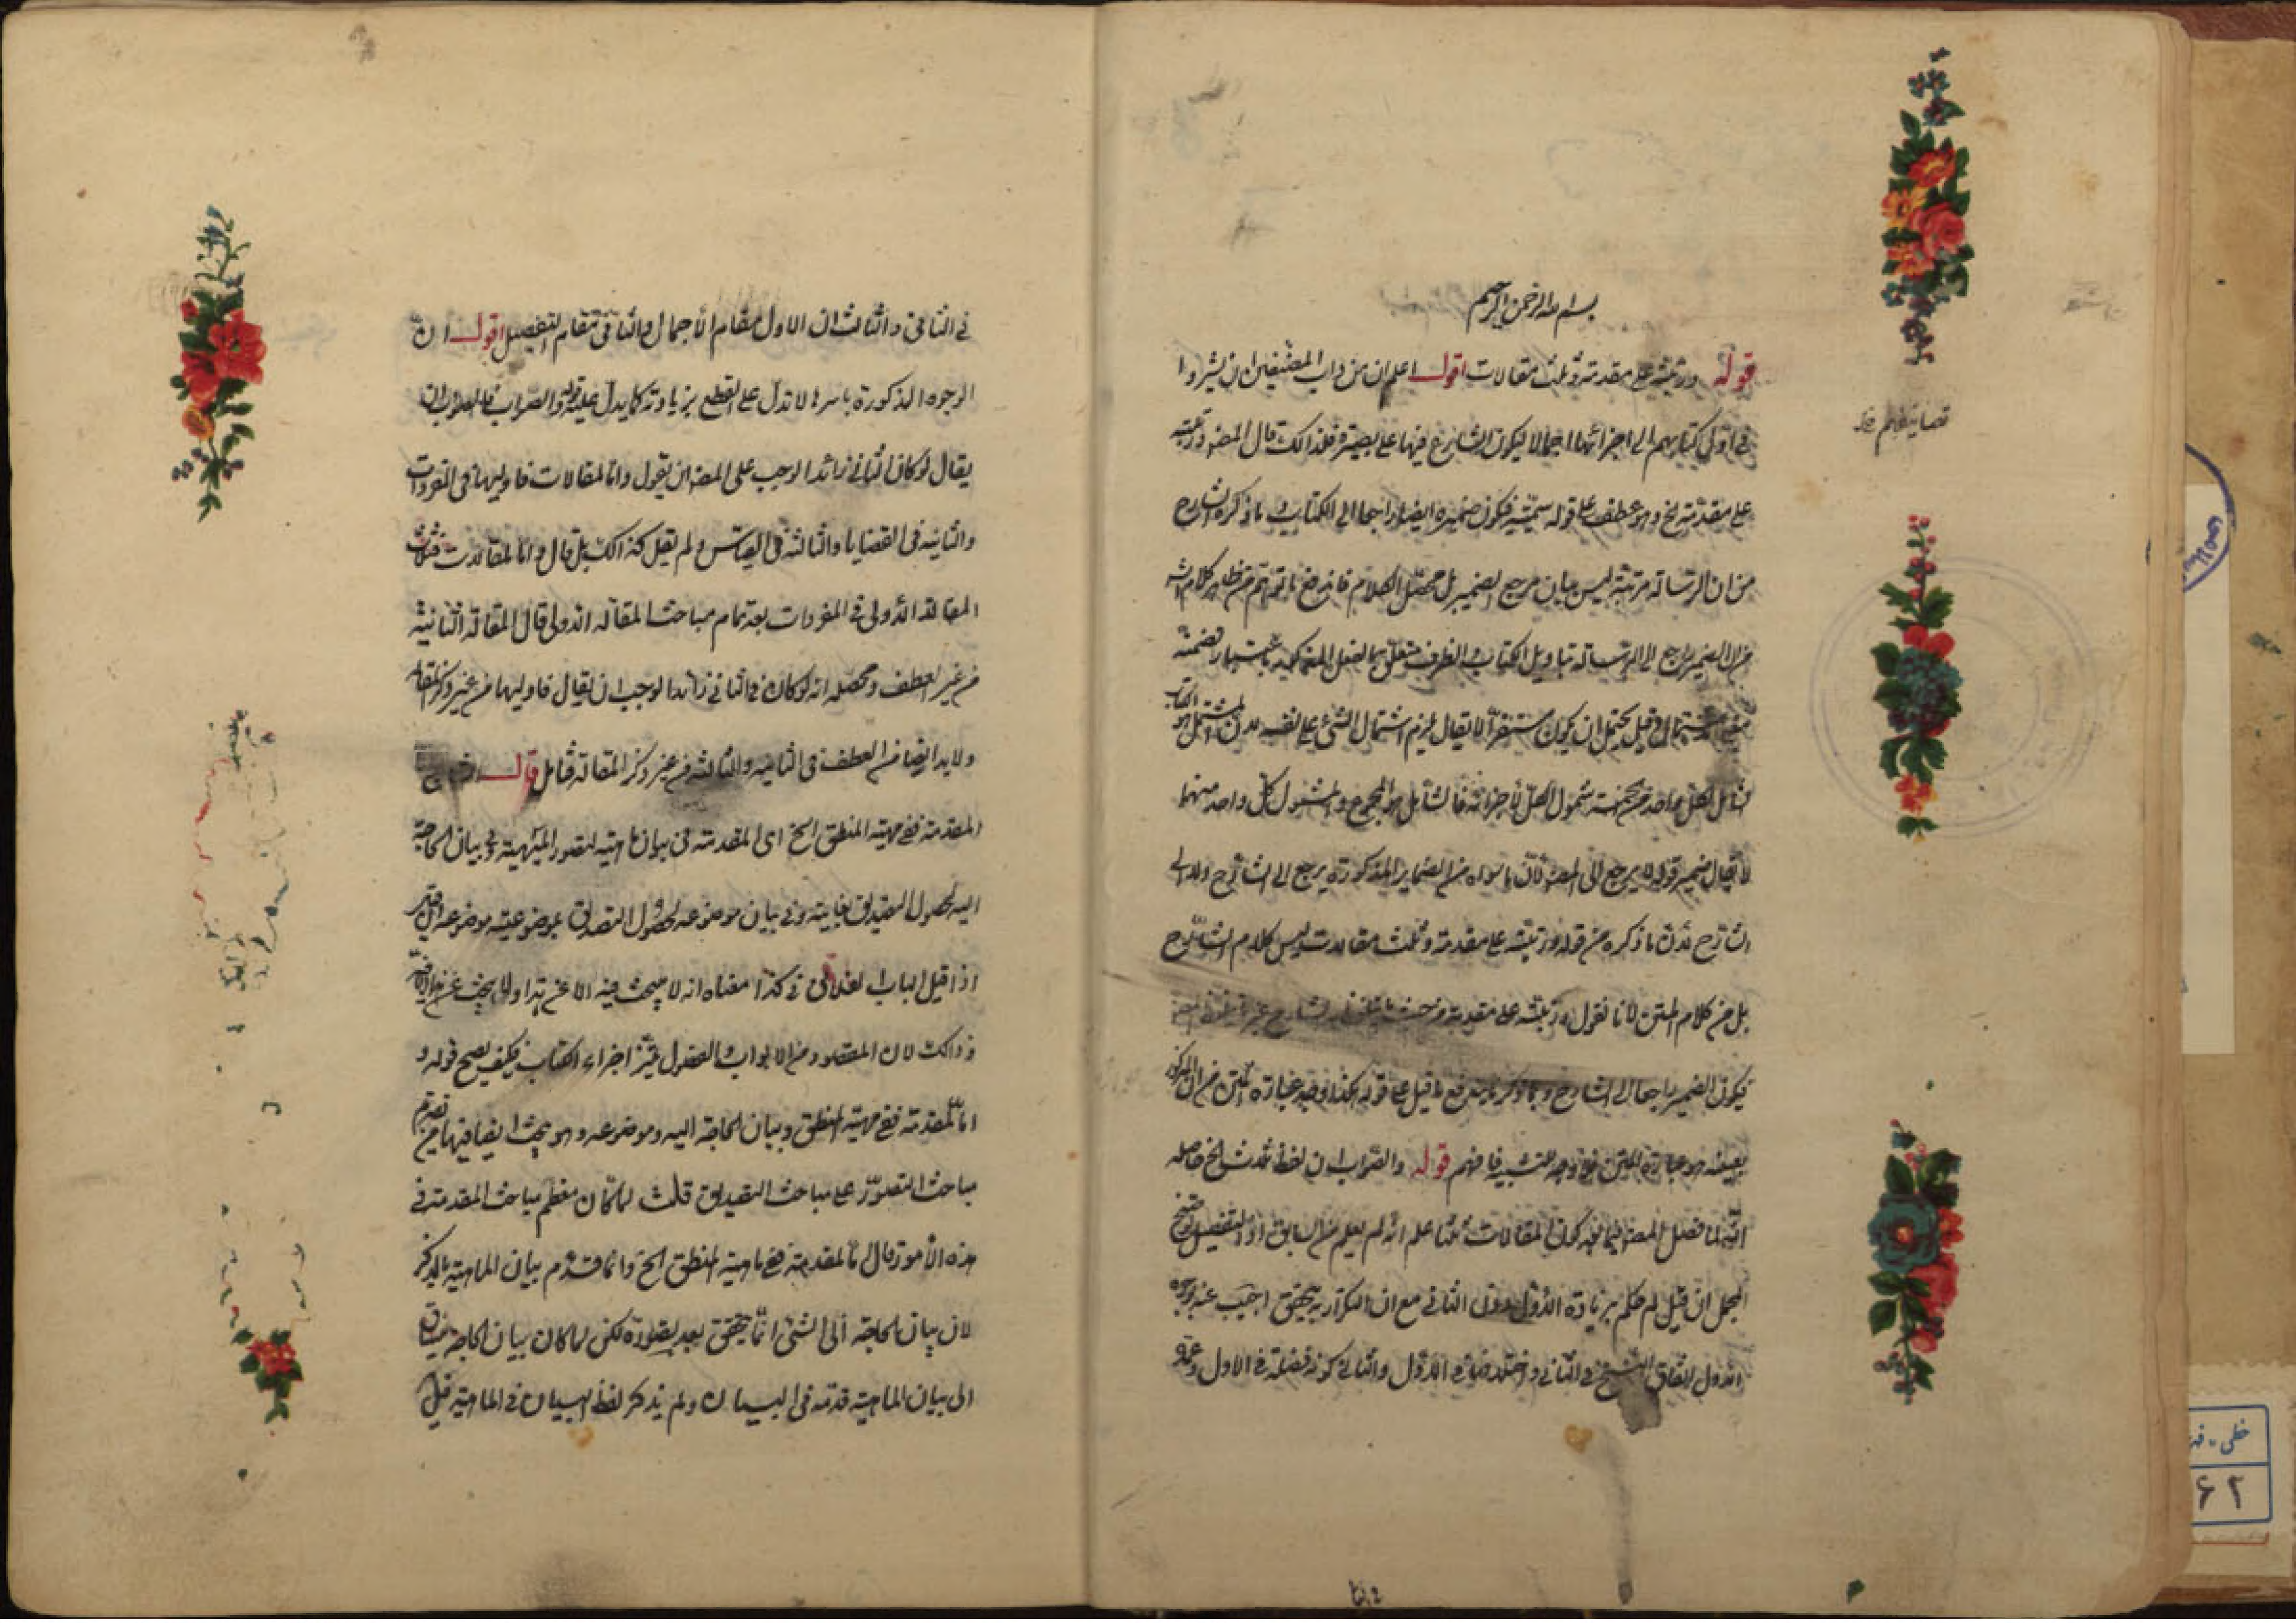 بسم الله الرحمن الرحيم
قوله ورتبته على مقدمة وثلث مقالات اقول اعلم ان من داب المصنفين ان يشيروا
في اول كتابهم الى اجزائها اجمالا ليكون الشارع فيها على بصيرة فلذالك قال المصـ ورتبته
تصانيفهم خ
على مقدمة الخ وهو عطف على قوله سميته فيكون ضميره ايضا راجعا الى الكتاب و ما ذكره الشارح
من ان الرسالة مرتبة ليس بيان مرجع الضمير بل محصل الكلام فاندفع ما توهم من ظاهر كلام الشـ
من ان الضمير راجع الى الرسالة بتاويل الكتاب والظرف متعلق بالفعل المذكور باعتبار تضمنه
معنى الاشتمال وقيل يحتمل ان يكون مستقرا لا يقال يلزم اشتمال الشئ على نفسه لان المشتمل هو الكتاب
شامل لكل واحد من شمول الكل لأجزائه فالشامل هو المجموع والمشمول كل واحد منهما
لا يقال ضمير قوله لا يرجع الى المصـ لان ما سواه من الضماير المذكورة يرجع الى الشارح ولا الى
الشارح لان ما ذكره من قوله ورتبته على مقدمة وثلث مقالات ليس كلام الشارح
بل من كلام المتن لانا نقول ورتبته على مقدمة
فيكون الضمير راجعا الى الشارح وبما ذكرنا يندفع ما قيل على قوله هكذا وجد عبارة المتن من ان المذكور
بعينه هو عبارة المتن فما وجه التشبيه فافهم قوله والصواب ان لفظ ثلث الخ حاصله
انه لما فصل المصـ فيما بعد كون المقالات ثلثا علم انه لم يعلم من السابق اذ التفصيل
المجمل ان قيل لم حكم بزيادة الاول دون الثاني مع ان التكرار به يتحقق اجيب عنه بوجوه
الاول اتفاق النسخ في الثاني واختلافها في الاول والثاني كونه فضلة في الاول وعمدة
في الثاني والثالث ان الاول مقام الاجمال والثاني مقام التفصيل اقول ان
الوجوه المذكورة باسرها لا تدل على القطع بزيادته كما يدل عليه قوله والصواب فالصواب ان
يقال لو كان الثاني زائدا لوجب على المصـ ان يقول واما المقالات فاوليها في المفردات
والثانية في القضايا والثالثة في القياس ولم يقل كذالك بل قال واما المقالات فثلاث
المقالة الاولى في المفردات بعد تمام مباحث المقالة الاولى قال المقالة الثانية
من غير العطف ومحصله انه لو كان في الثاني زائدا لوجب ان يقال فاوليها من غير ذكر المقالة
ولا بد ايضا من العطف في الثانية والثالثة من غير ذكر المقالة فتامل قال
المقدمة ففي مهية المنطق الخ اى المقدمة في بيان ماهيته لتصور الميهية وفي بيان الحاجة
اليه لحصول التصديق بغايته وفي بيان موضوعه لحصول التصديق بموضوعية موضوعه
اذا قيل الباب الفلاني في كذا معناه انه لا يبحث فيه الا عن هذا ولا يبحث عن
وذالك لان المقصود من الابواب والفصول تميّز اجزاء الكتاب فكيف يصح قوله و
اما المقدمة ففي مهية المنطق وبيان الحاجة اليه وموضوعه وهو يبحث ايضا فيها من تقديم
مباحث التصور على مباحث التصديق قلت لما كان معظم مباحث المقدمة في
هذه الأمور قال اما المقدمة ففي ماهية المنطق الخ وانما قدم بيان الماهية بالذكر
لان بيان الحاجة الى الشئ انما يتحقق بعد تصوره لكن لما كان بيان الحاجة
الى بيان الماهية قدمه في البيان ولم يذكر لفظ البيان في الماهية
خطى - فهر
۶۲